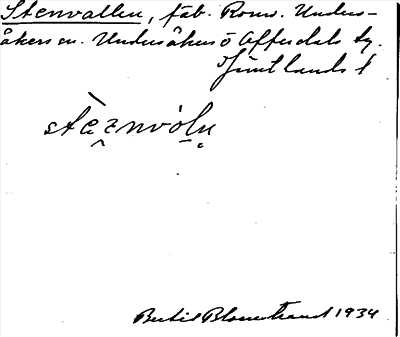 Stenvallen, fäb. Komm. Unders-
åkers sn. Undersåkers o Offerdals tg.
Jämtlands l
Bertil Blomstrand 1934